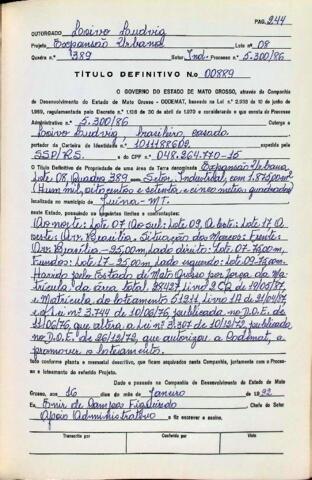 PAG. 244
OUTORGADO Loivo Ludvig
Projeto Expansão Urbana Lote nº 08
Quadra n.º 389 Setor Ind. Processo nº 5.300/86
TÍTULO DEFINITIVO N.o 00889
O GOVERNO DO ESTADO DE MATO GROSSO, através da Companhia
de Desenvolvimento do Estado de Mato Grosso - CODEMAT, baseado na Lei n.º 2.906 de 10 de junho de
1969, regulamentada pelo Decreto n.º 1.138 de 30 de abril de 1970 e considerando o que consta do Processo
Administrativo n.º 5.300/86 Outorga a
Loivo Ludvig, brasileiro, casado
portador da Carteira de Identidade n.º 1011188609 expedida pela
SSP/RS. e do CPF n.º 048.264.770-15
o Título Definitivo de Propriedade de uma área de Terra denominada Expansão Urbana,
Lote 08, Quadra 389 com Setor Industrial, com 1.875,00m²
(Hum mil, oitocentos e setenta e cinco metros quadrados)
localizada no município de Juína-MT.
neste Estado, possuindo os seguintes limites e confrontações:
Ao norte: Lote 07 Ao sul: Lote 09, A leste: Lote 17 A
oeste: Av. Brasília. Situação dos Marcos: Frente:
Av. Brasília - 25,00m, Lado direito: Lote 07-75,00m
Fundos: Lote 17 - 25,00m Lado esquerdo: Lote 09-75,00m
Havido pelo Estado de Mato Grosso por força da Ma-
trícula da área total 28427 Livro 2 CQ de 14/05/87,
e Matrícula do loteamento 51211 Livro de 21/04/87
e Lei nº 3.744 de 10/06/76, publicada no D.O.E. de
11/06/76, que altera a Lei nº 3.307 de 10/12/72, publicada
no D.O.E. de 26/12/72, que autorizou a Codemat, a
promover o loteamento.
tudo conforme planta e memorial descritivo, que ficam arquivados nesta Companhia, juntamente com o Proces-
so e loteamento do referido Projeto.
Dado e passado na Companhia de Desenvolvimento do Estado de Mato
Grosso, aos 16 dias do mês de Janeiro de 1992
Eu, Enir de Campos Figueiredo Chefe do Setor
Apoio Administrativo o fiz escrever e assino.
Transcrito por Conferido por Visto